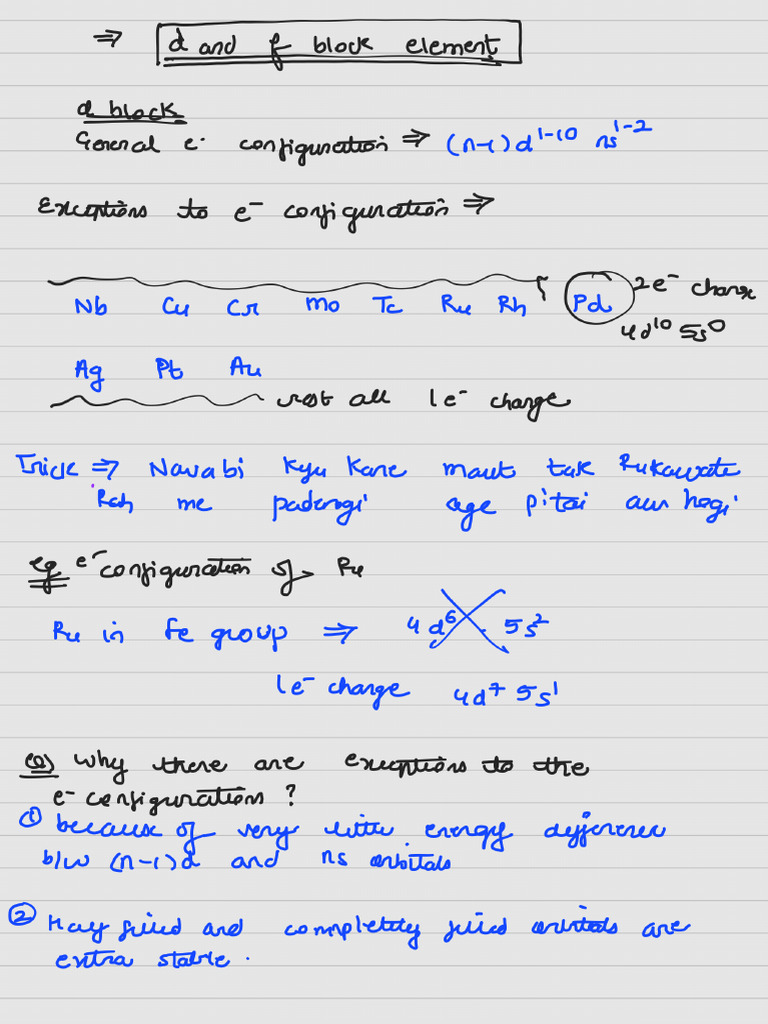 ⇒ d and f block element
d block
General e⁻ configuration ⇒ (n-1)d¹⁻¹⁰ ns¹⁻²
Exceptions to e⁻ configuration ⇒
Nb Cu Cr Mo Tc Ru Rh Pd 2e⁻ change
4d¹⁰ 5s⁰
Ag Pt Au
rest all 1e⁻ change
Trick ⇒ Navabi Kyu Kare maut tak Rukawate
Rah me padengi age pitai aur hogi
eg e⁻ configuration of Ru
Ru in Fe group ⇒ 4d⁶ 5s²
1e⁻ change 4d⁷ 5s¹
Q) Why there are exceptions to the
e⁻ configuration ?
① because of very little energy difference
b/w (n-1)d and ns orbitals
② Half filled and completely filled orbitals are
extra stable.